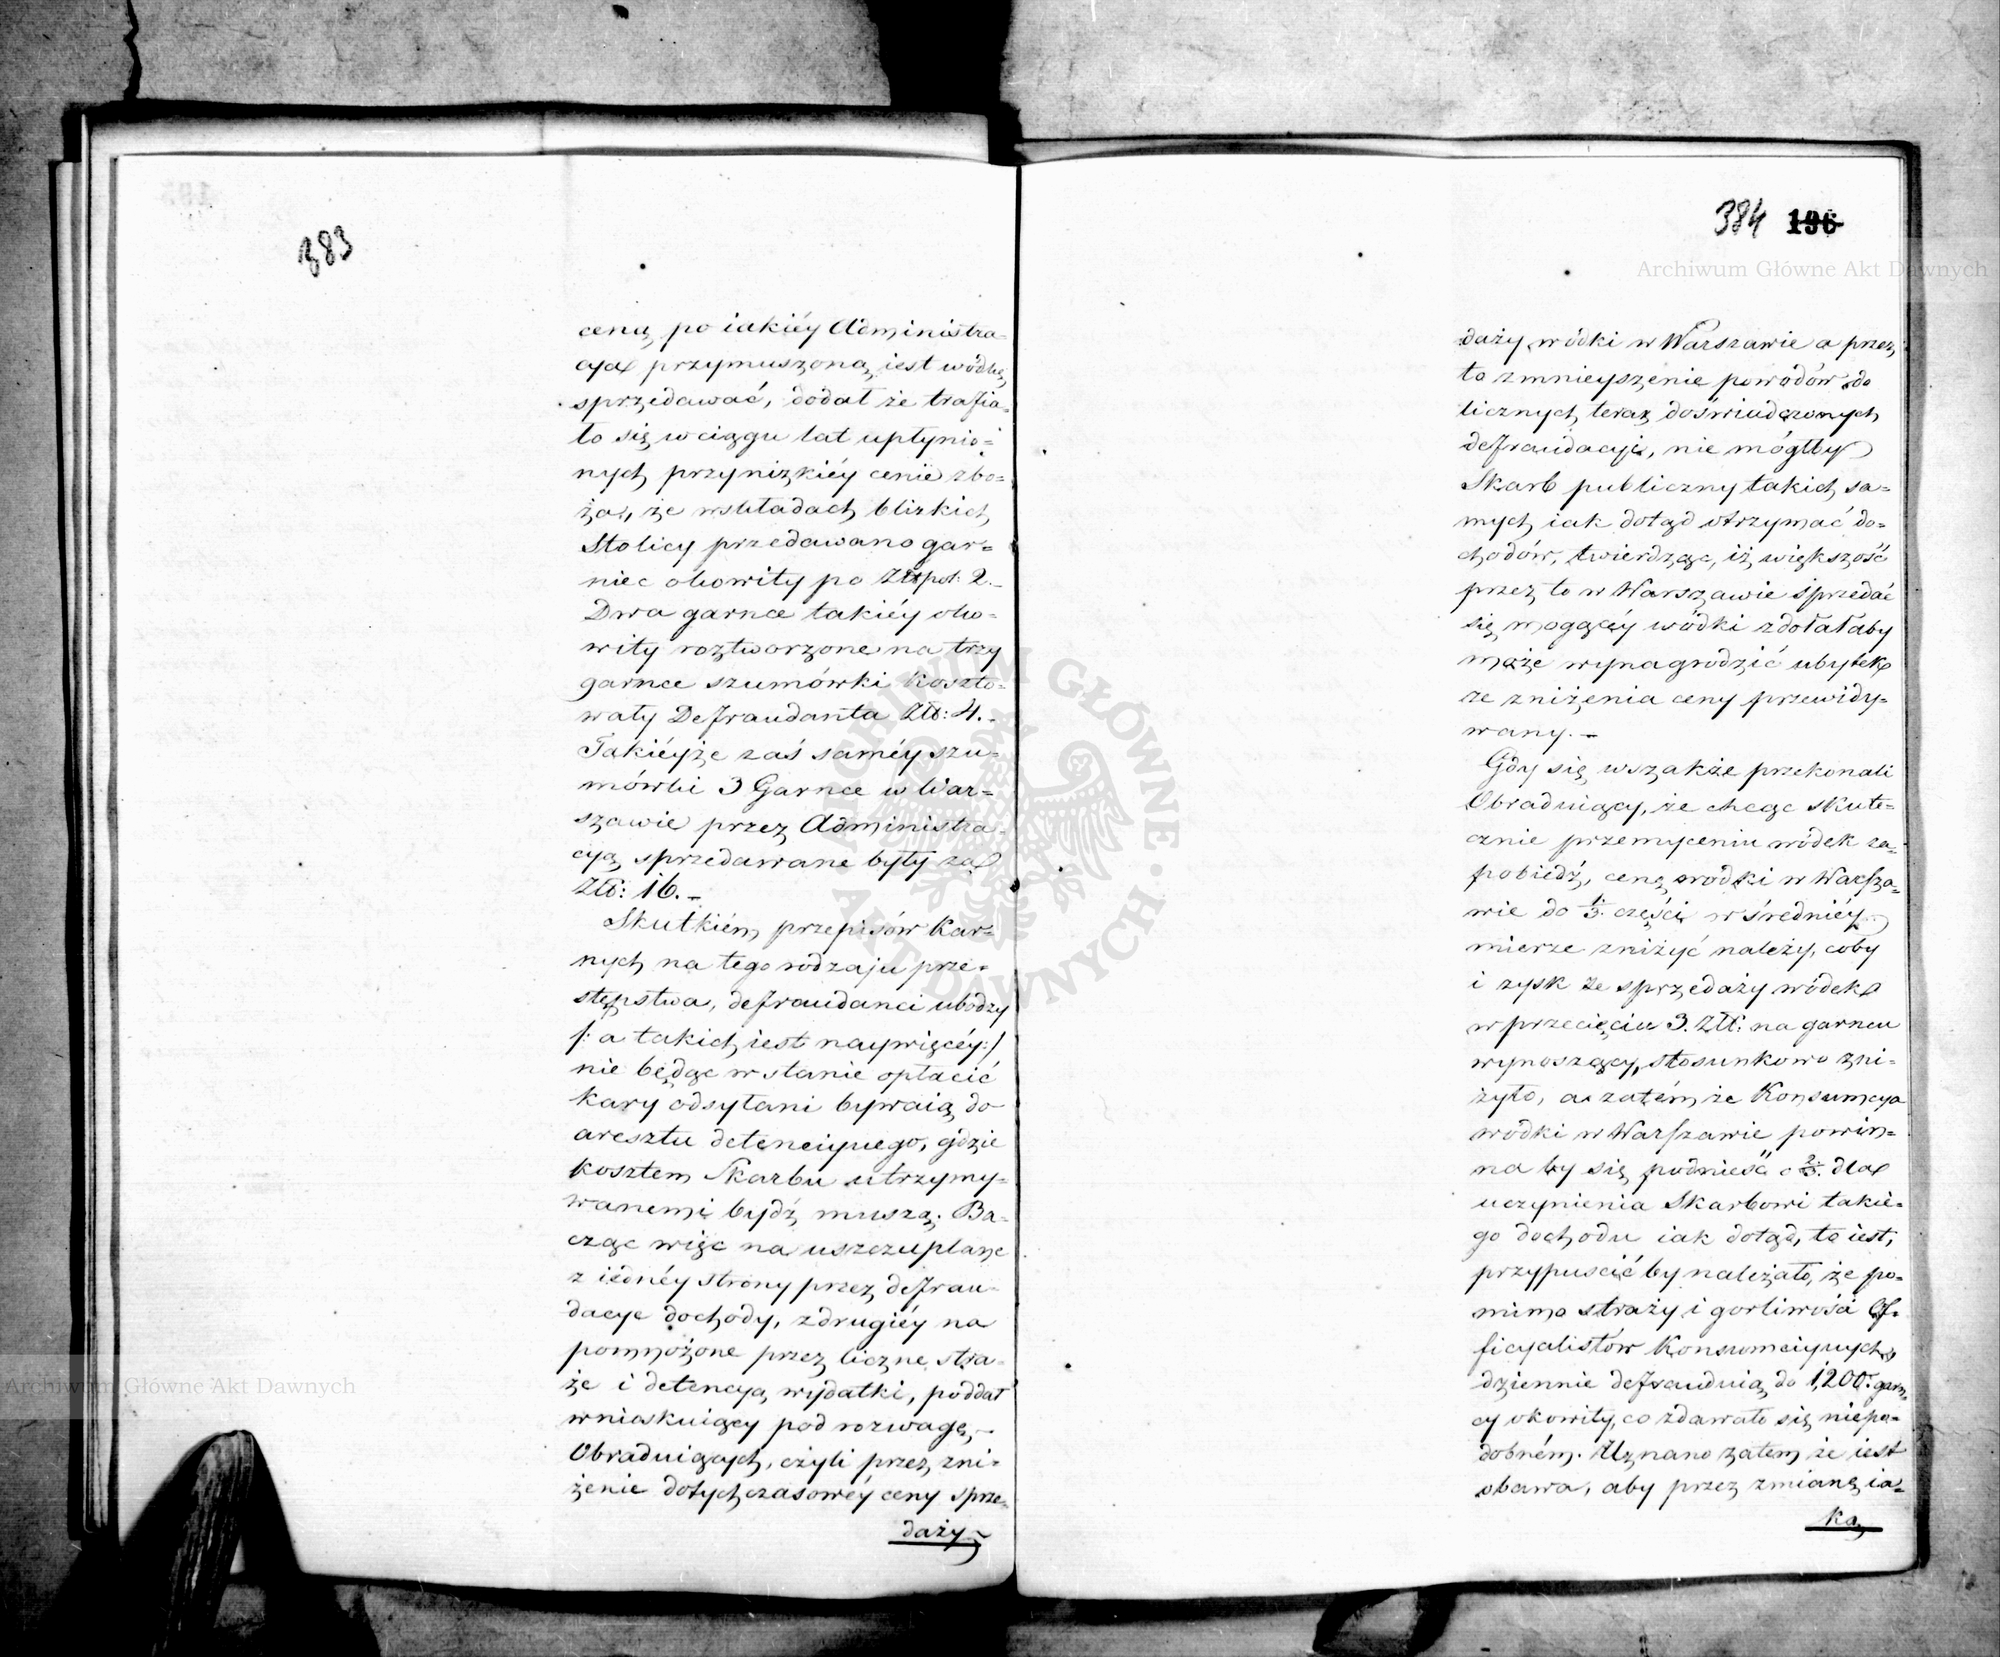 383
ceną, po iakiéy Administra-
cya przymuszoną iest wódkę
sprzedawać, dodał że trafia-
ło się w ciągu lat upłynio-
nych przy nizkiéy cenie zbo-
ża, że w składach blizkich
Stolicy przedawano gar-
niec okowity po Złt pol: 2.-
Dwa garnce takiéy oko-
wity roztworzone na trzy
garnce szumówki koszto-
wały Defraudanta Złt: 4.-
Takiéyże zaś saméy szu-
mówki 3 Garnce w War-
szawie przez Administra-
cyą sprzedawane były za
Złt: 16.-
Skutkiém przepisów Kar-
nych na tego rodzaju prze-
stępstwa, defraudanci ubodzy
/: a takich iest naywięcéy:/
nie będąc w stanie opłacić
kary odsyłani bywaią do
aresztu detencyinego, gdzie
kosztem Skarbu utrzymy-
wanemi bydź muszą. Ba-
cząc więc na uszczuplane
z iednéy strony przez defrau-
dacye dochody, z drugiéy na
pomnożone przez liczne stra-
że i detencyą wydatki, poddał
wnioskuiący pod rozwagę
Obraduiących, czyli przez zni-
żenie dotychczasowéy ceny sprze-
daży
384 196
daży wódki w Warszawie a przez
to zmnieyszenie powodów do
licznych teraz doświadczonych
defraudacyi, nie mógłby
Skarb publiczny takich sa-
mych iak dotąd otrzymać do-
chodów, twierdząc, iż większość
przez to w Warszawie sprzedać
się mogącéy wódki zdołałaby
może wynagrodzić ubytek
ze zniżenia ceny przewidy-
wany.-
Gdy się wszakże przekonali
Obraduiący, że chcąc skute-
cznie przemyceniu wódek za-
pobiedź, cenę wódki w Warsza-
wie do 1/3. części w średniéy
mierze zniżyć należy, coby
i zysk ze sprzedaży wódek
w przecięciu 3. Złt: na garncu
wynoszący, stosunkowo zni-
żyło, a zatém że Konsumcya
wódki w Warszawie powin-
na by się podnieść o 2/3. dla
uczynienia Skarbowi takie-
go dochodu iak dotąd, to iest,
przypuscić by należało, że po-
mimo straży i gorliwości Of-
ficyalistów Konsumcyinych
dziennie defrauduią do 1,200. garn-
cy okowity, co zdawało się niepo-
dobném. Uznano zatem że iest
obawa, aby przez zmianę ia-
ką
Archiwum Główne Akt Dawnych
Archiwum Główne Akt Dawnych
ARCHIWUM GŁÓWNE AKT DAWNYCH